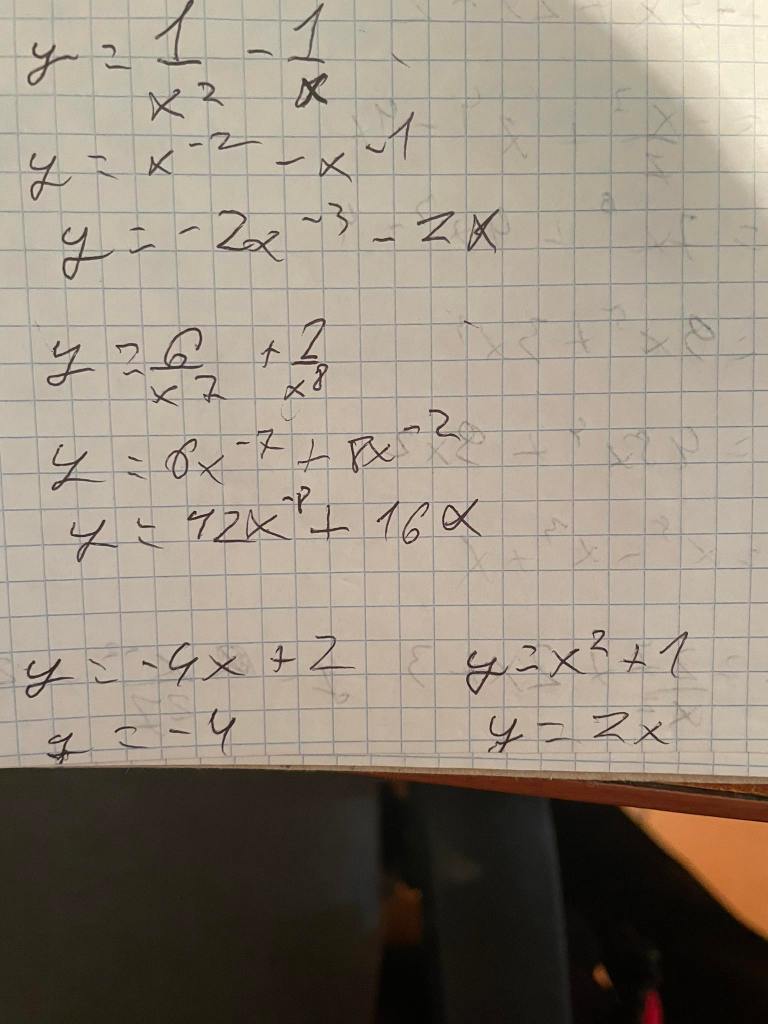 y = 1/x² - 1/x
y = x⁻² - x⁻¹
y = -2x⁻³ - 2x
y = 6/x⁷ + 2/x⁸
y = 6x⁻⁷ + 8x⁻²
y = 42x⁻⁸ + 16x
y = -4x + 2 y = x² + 1
y = -4 y = 2x